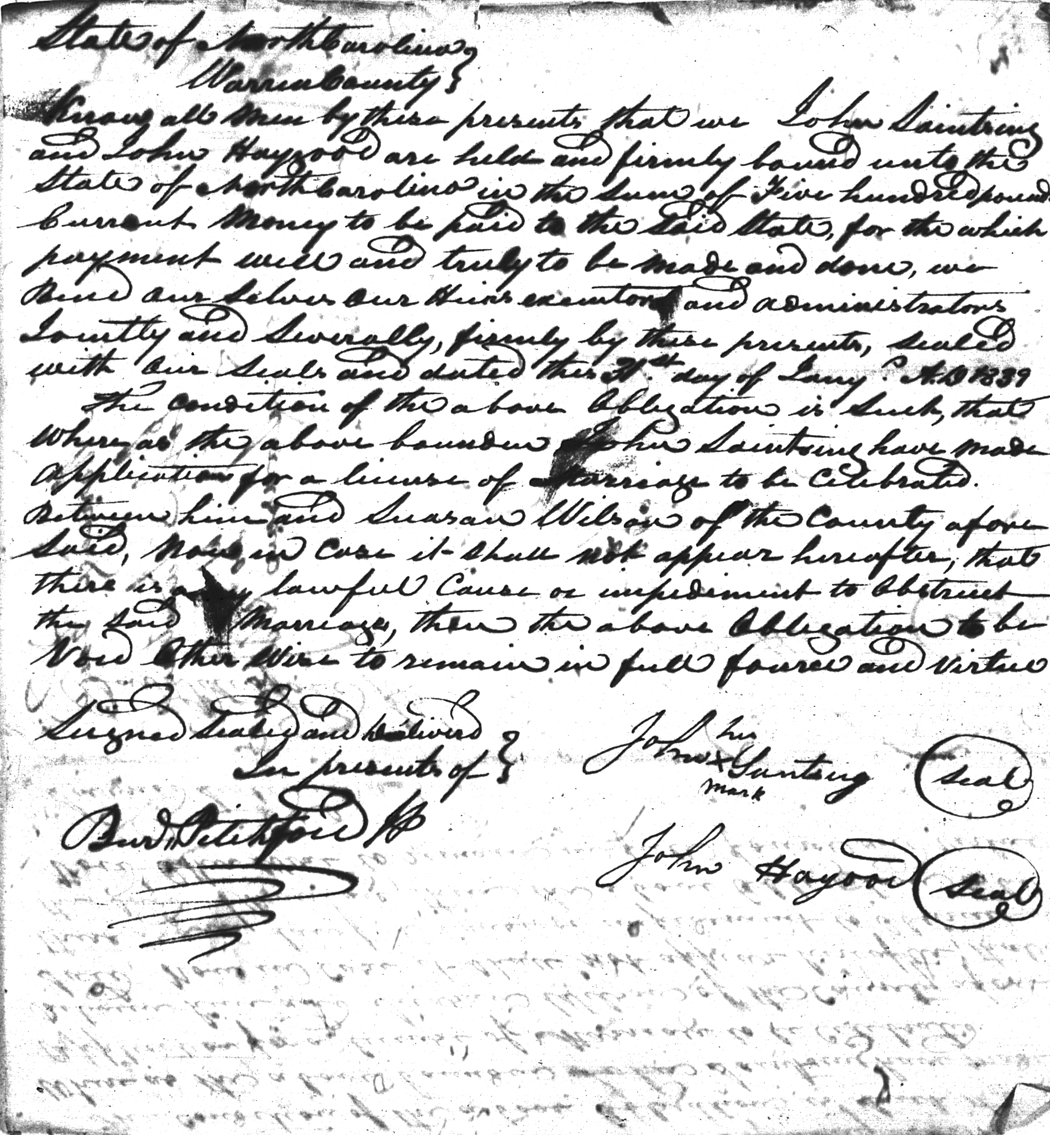 State of North Carolina }
Warren County }
Know all Men by these presents that we John Saintsing
and John Haygood are held and firmly bound unto the
State of North Carolina in the Sum of Five hundred pound
Current Money to be paid to the Said State, for the which
payment well and truly to be made and done, we
Bind Our Selves Our Heirs executors and administrators
Jointly and Severally, firmly by these presents, sealed
with Our Seals and dated this 21st day of Jany. A.D 1839
The condition of the above Obligation is Such, that
Where as the above bounden John Saintsing have made
Application for a license of Marriage to be Celebrated.
Between him and Suasan Wilson of the County afore
Said, Now in Case it Shall not appear hereafter, that
there is any lawful Cause or impediment to Obstruct
the Said Marriage, then the above Obligation to be
Void Other Wise to remain in full fource and Virtue
Signed Sealed and Deliverd }
In presents of }
John his x mark Santsing seal
Pitchford JP
John Haygood seal